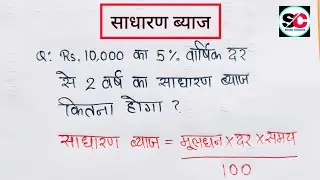 साधारण ब्याज
SC
Q: Rs. 10,000 का 5% वार्षिक दर
से 2 वर्ष का साधारण ब्याज
कितना होगा ?
साधारण ब्याज = मूलधन × दर × समय
100